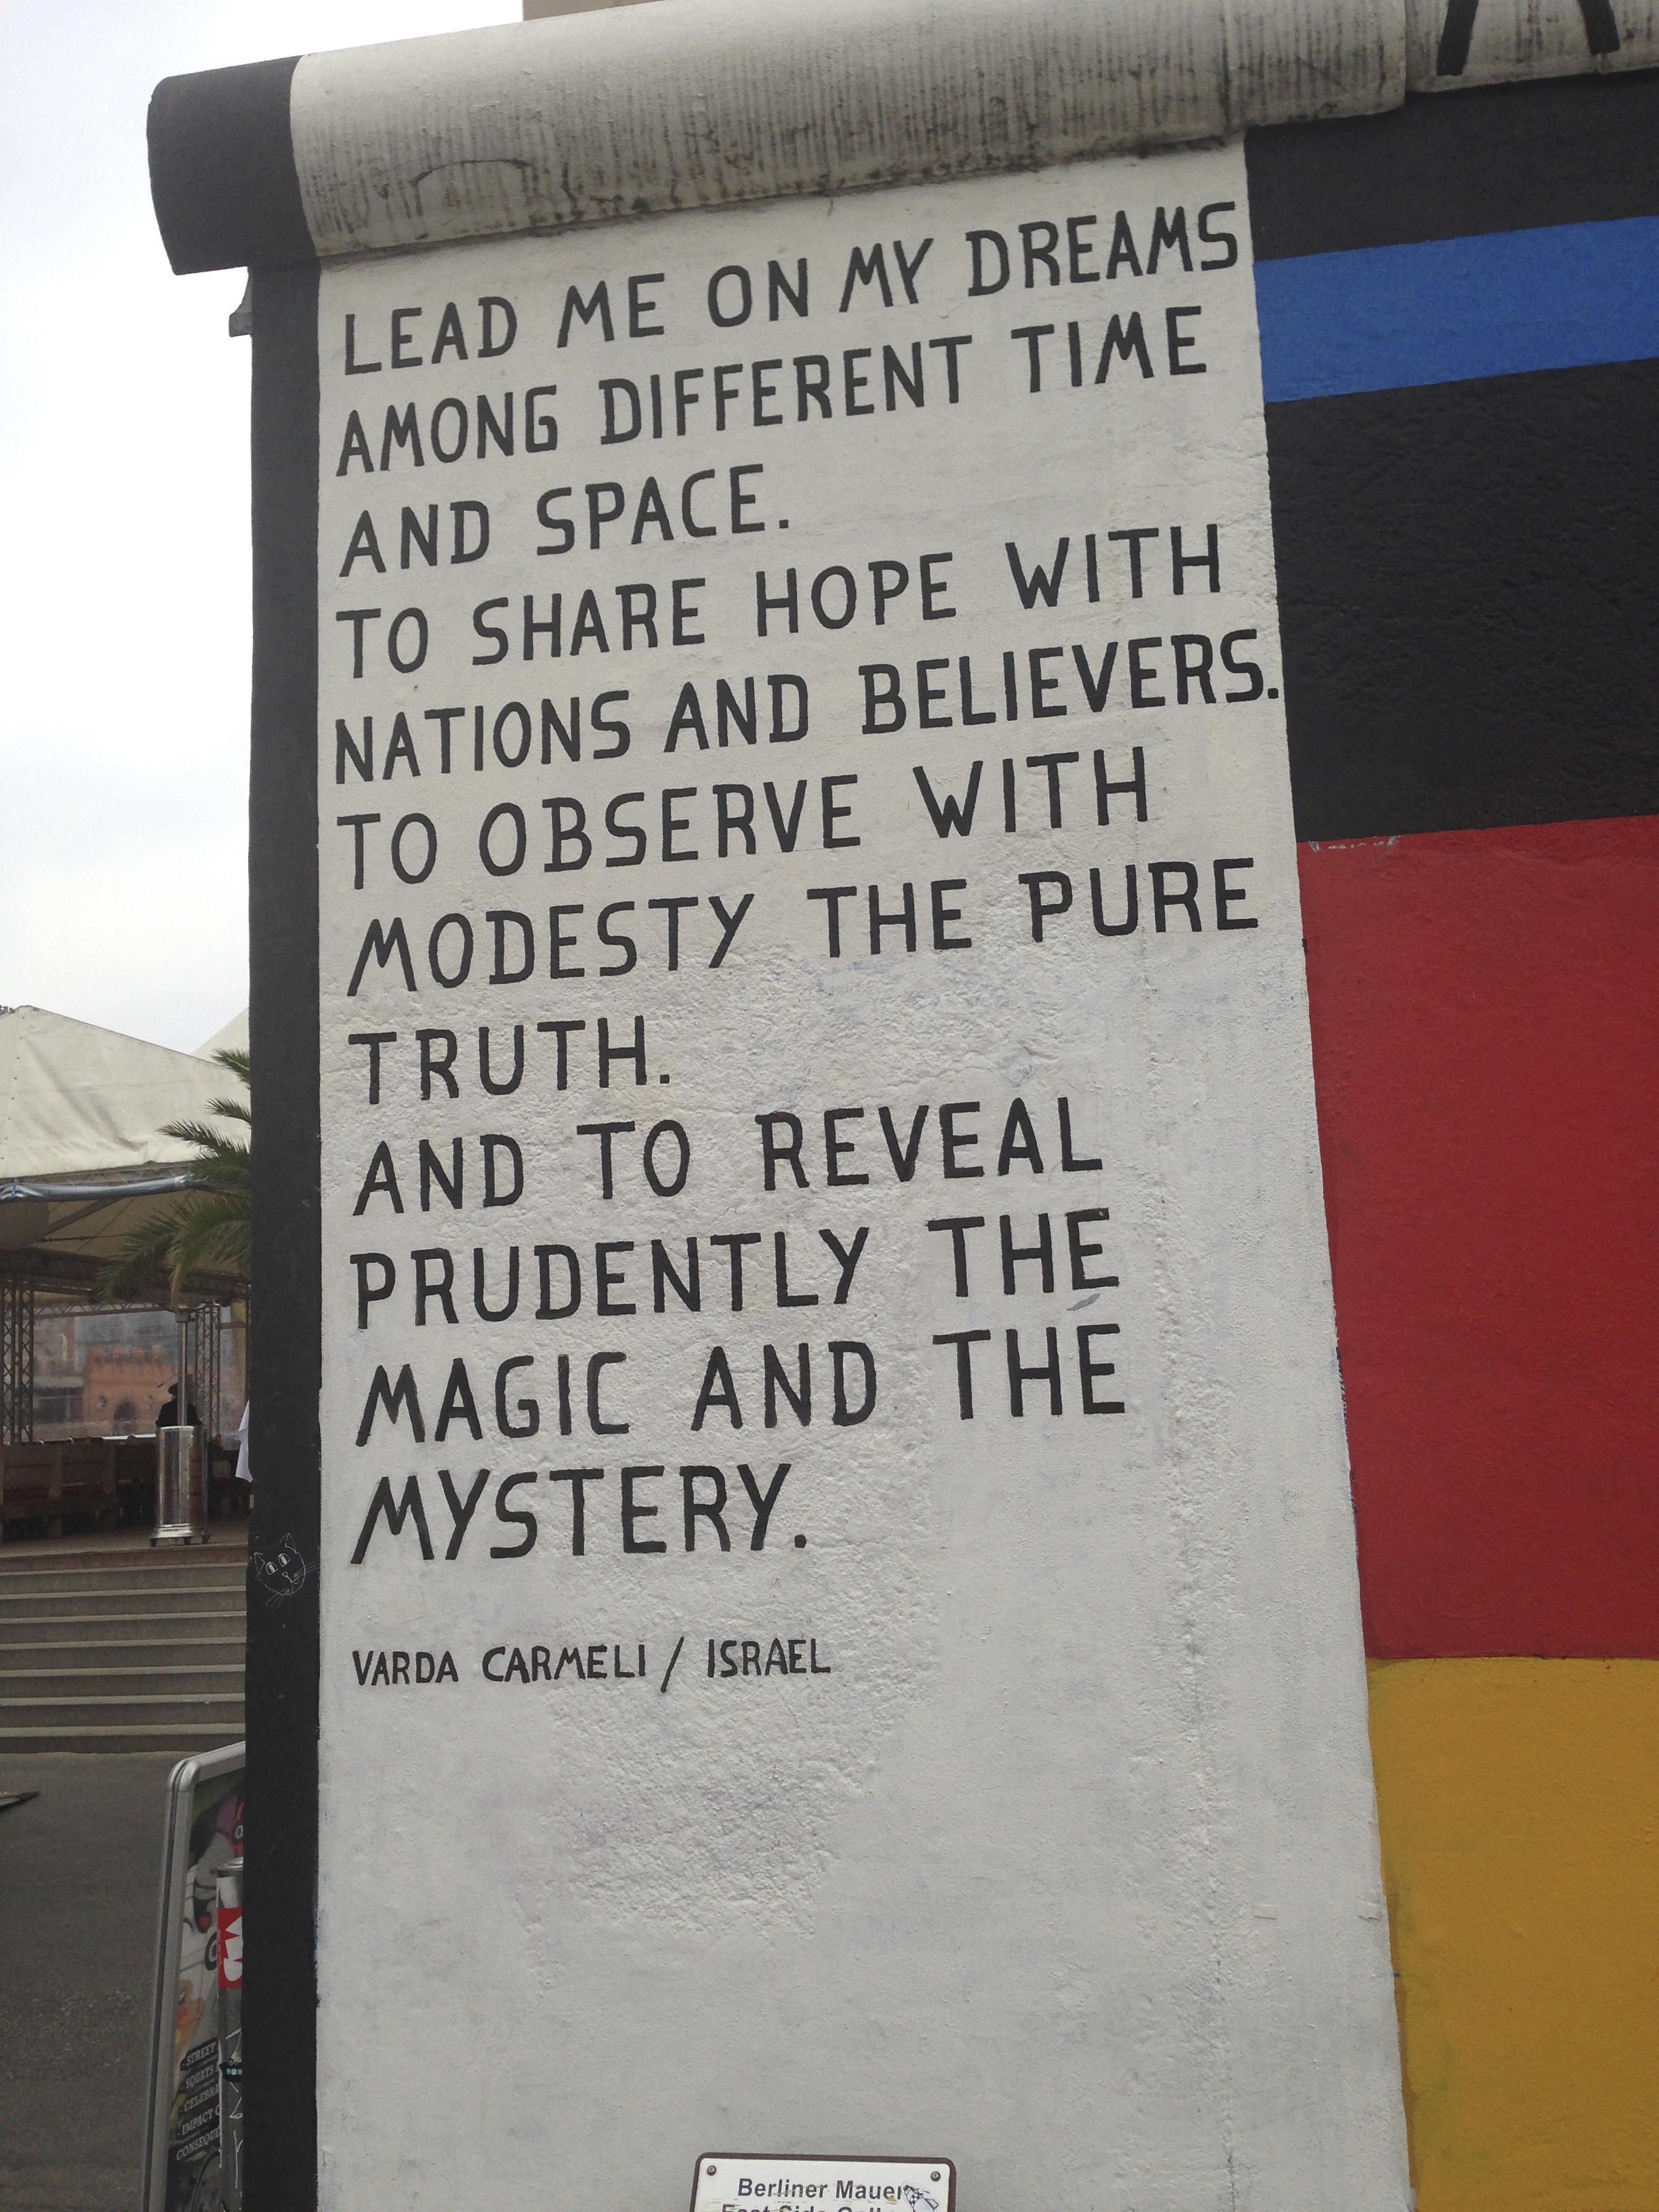 LEAD ME ON MY DREAMS
AMONG DIFFERENT TIME
AND SPACE.
TO SHARE HOPE WITH
NATIONS AND BELIEVERS.
TO OBSERVE WITH
MODESTY THE PURE
TRUTH.
AND TO REVEAL
PRUDENTLY THE
MAGIC AND THE
MYSTERY.
VARDA CARMELI / ISRAEL
STREET
SQUATS
IMPACT
Berliner Mauer
East Side